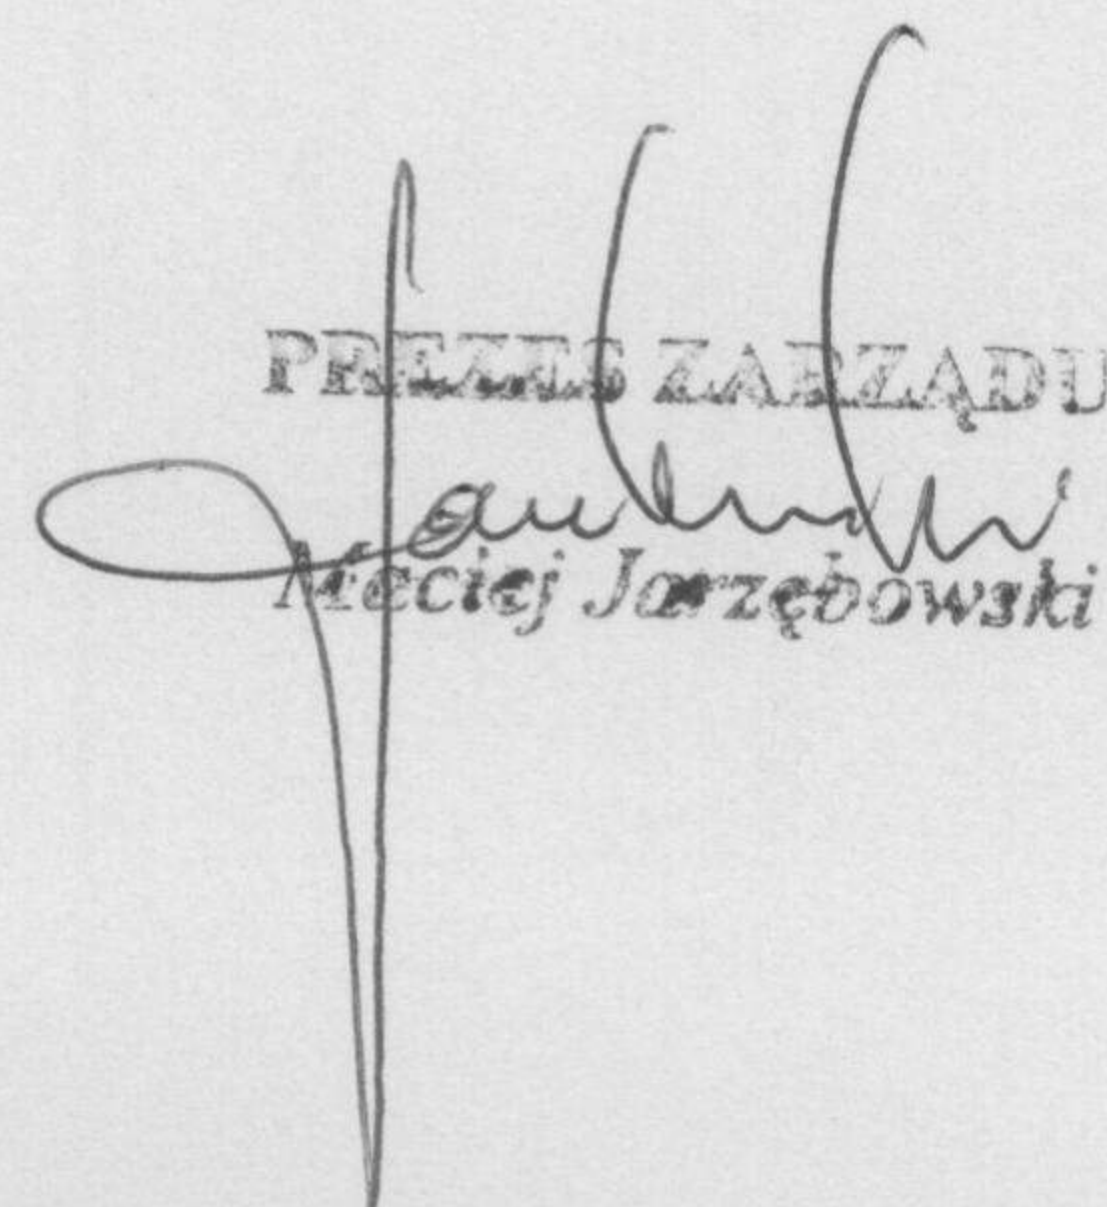 PREZES ZARZĄDU
Maciej Jarzębowski